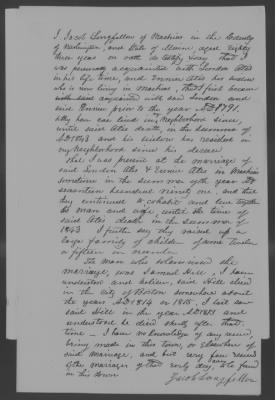 I, Jacob Longfellow of Machias in the County
of Washington, and State of Maine aged Eighty
three years on oath do testify & say that I
was personally acquainted with London Atus
in his life time, and Eunice Atus his widow
who is now living in Machias, that I first became
acquainted with said London and
said Eunice prior to the year AD 1791.
they have lived in my Neighborhood since,
until said Atus death, in the summer of
AD 1843 and his widow has resided in
my Neighborhood since his decease
That I was present at the marriage of
said London Atus & Eunice Atus in Machias
sometime in the summer of the year
seventeen hundred ninety one, and that
they continued to cohabit and live together
as man and wife, until the time of
said Atus death in the summer of
1843 I further say they raised up a
large family of children of some twelve
or fifteen in number
The man who solemnized the
marriage, was Samuel Hill, I have
understood and believe, said Hill died
in the City of Boston somewhere about
the years AD 1814 or 1815, I last saw
said Hill in the year AD 1813 and
understood he died shortly after that
time — I have no knowledge of any record
being made in this town, or elsewhere of
said marriage, and but very few record
of other marriages of that early day, to be found
in this town
Jacob Longfellow